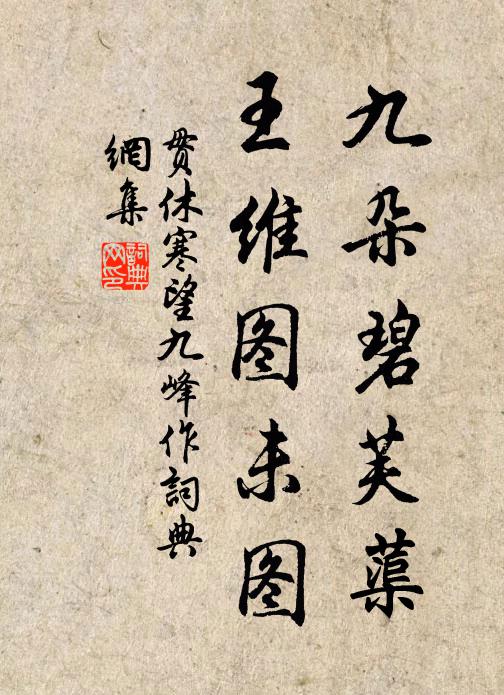 九朵碧芙蕖
王维图未图
贯休寒望九峰作詞典
網集
詞典网印